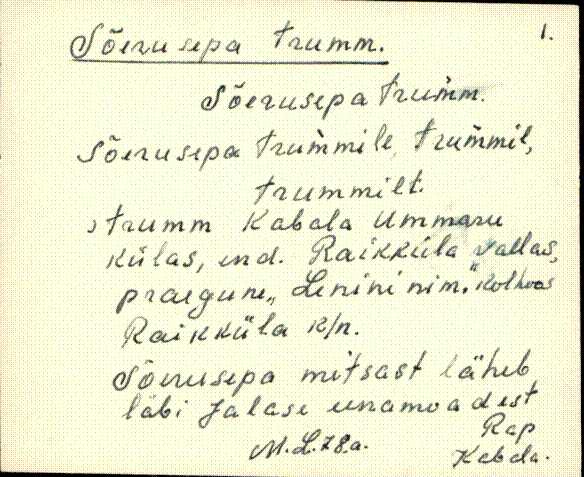 1.
Sõerusepa trumm.
Sõerusepa trumm.
Sõerusepa trummile, trummil,
trummilt.
trumm Kabala Ummaru
külas, end. Raikküla vallas,
praegune „Lenini nim." kolhoos
Raikküla k/n.
Sõerusepa mitsast läheb
läbi Jalase
Rap
M.L. 78.a.
Kabala.